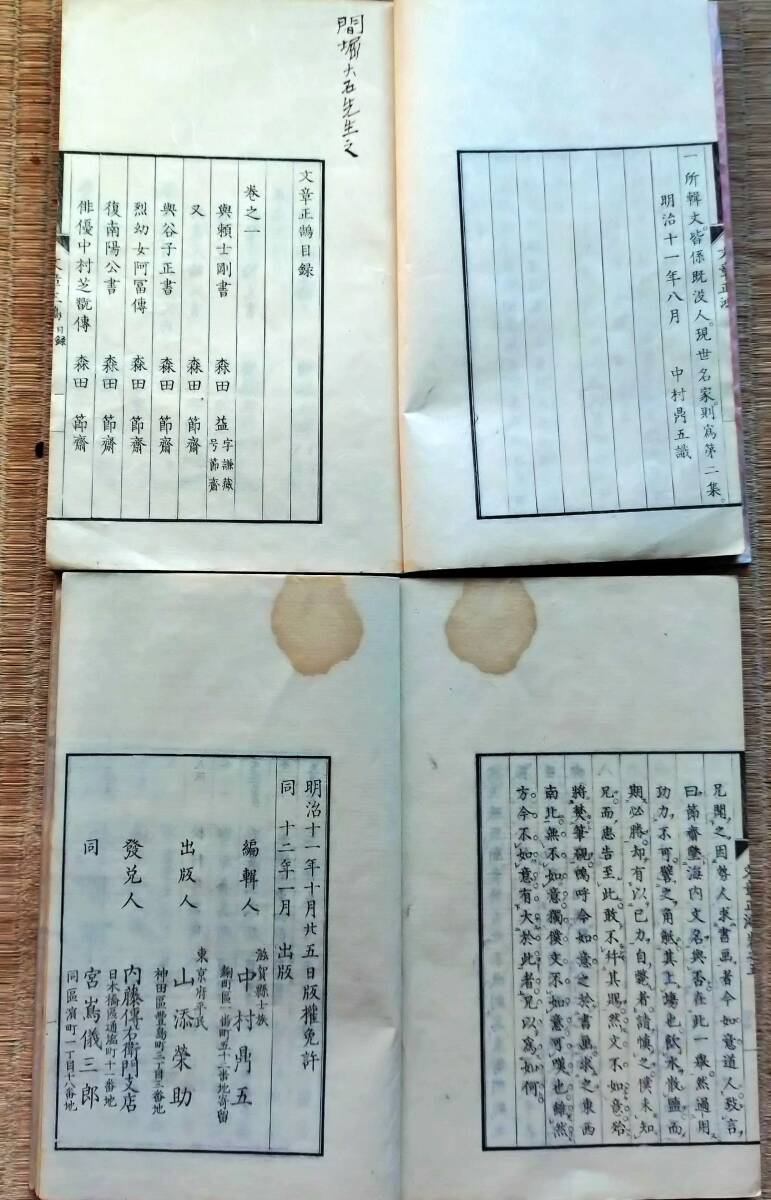 一所輯文。皆係既沒人。現世名家。則寫第二集。
明治十一年八月　中村鼎五識
文章正
間
大石先生之
文章正鵠目録
卷之一
與頼士剛書　森田　益字謙藏号節齋
又　森田　節齋
與谷子正書　森田　節齋
烈幼女阿冨傳　森田　節齋
復南陽公書　森田　節齋
俳優中村芝翫傳　森田　節齋
目録
兄聞之。因善人求書画者。今如意道人致言
曰。節齋墜海内文名與否。在此一擧。然過用
功力。不可譬之角觝。其上塲也。飲水散鹽。而
期必勝。却有以己力自斃者。請慎之。僕未知
兄。而惠告至此。敢不
然文不如意殆
將焚筆硯。嗚呼今如意之於書画。求之東西
南北。無不如意。獨僕文不如意。可嘆也。雖然
方今不如意有大於此者。兄以爲如何。
文章正
五
明治十一年十月廿五日版權免許
同　十二年一月　出版
滋賀縣士族
編輯人　中村鼎五
麹町區一番町五十二番地寄留
東京府平民
出版人　山添榮助
神田區豐島町三丁目三番地
發兌人　内藤傳右衛門支店
日本橋區通塩町十一番地
同　宮嶌儀三郎
同區濱町一丁目十八番地